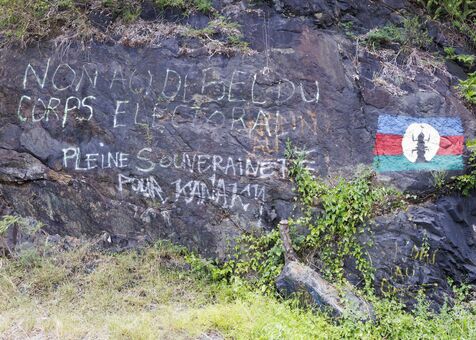 NON AU DEGEL DU
CORPS ELECTORAL
PLEINE SOUVERAINETE
POUR KANAKY